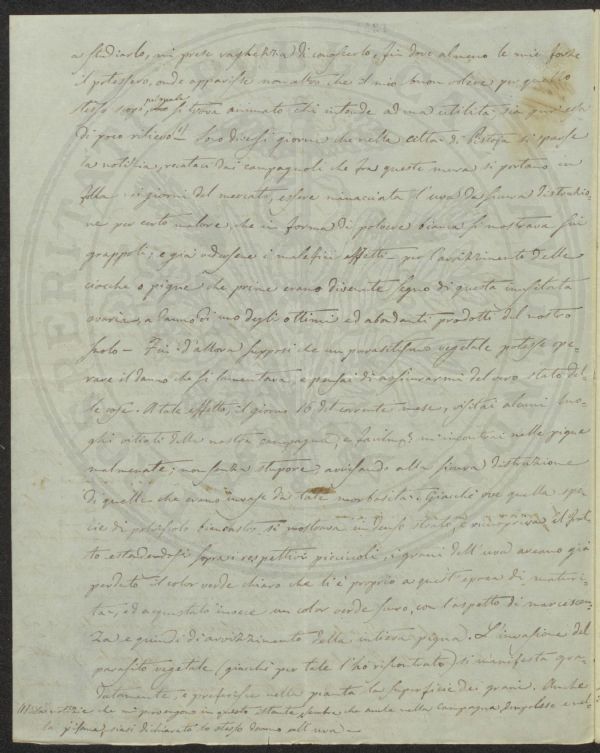 a studiarlo, mi prese vaghezza di conoscerlo, fin dove almeno le mie forze
il potessero, onde apparisse non altro che il mio buon volere, per quello
stesso scopo, pel quale si trova animato chi intende ad una utilità, sia pur essa
di poco rilievo (1) — Sono diversi giorni che nella città di Pistoja si sparse
la notizia, recataci dai campagnoli che fra queste mura si portano in
folla nei giorni del mercato, essere minacciata l'uva da sicura distruzio-
ne per certo malore, che in forma di polvere bianca si mostrava sui
grappoli; e già vedersene i malefici effetti per l'avvizzimento delle
ciocche o pigne che prime erano divenute segno di questa inusitata
avaria, a danno di uno degli ottimi ed abondanti prodotti del nostro
suolo — Fin d'allora supposi che un parassitismo vegetale potesse ope-
rare il danno che si lamentava, e pensai di assicurarmi del vero stato del-
le cose. A tale effetto, il giorno 16 del corrente mese, visitai alcuni luo-
ghi vitiati della nostra campagna, e facilmente mi incontrai nelle pigne
malmenate; non senza stupore, avvisando alla sicura distruzione
di quelle che erano invase da tale morbosità. Giacchè ove quella spe-
cie di polviscolo biancastro, si mostrava in denso strato, e ricopriva il frut-
to estendendosi sopra i respettivi picciuoli, i grani dell'uva aveano già
perduto il color verde chiaro che li è proprio a quest'epoca di maturi-
tà, ed acquistato invece un color verde scuro, con l'aspetto di marcescen-
za e quindi di avvizzimento della intiera pigna. L'invasione del
parasito vegetale (giacchè per tale l'ho riscontrato) si manifesta gra-
datamente, e preferisce nella pianta la superficie dei grani. Anche
(1) Da notizie che mi pervengono in questo istante, sembra che anche nella campagna Empolese e nel-
la pisana, siasi dichiarato lo stesso danno all'uva —